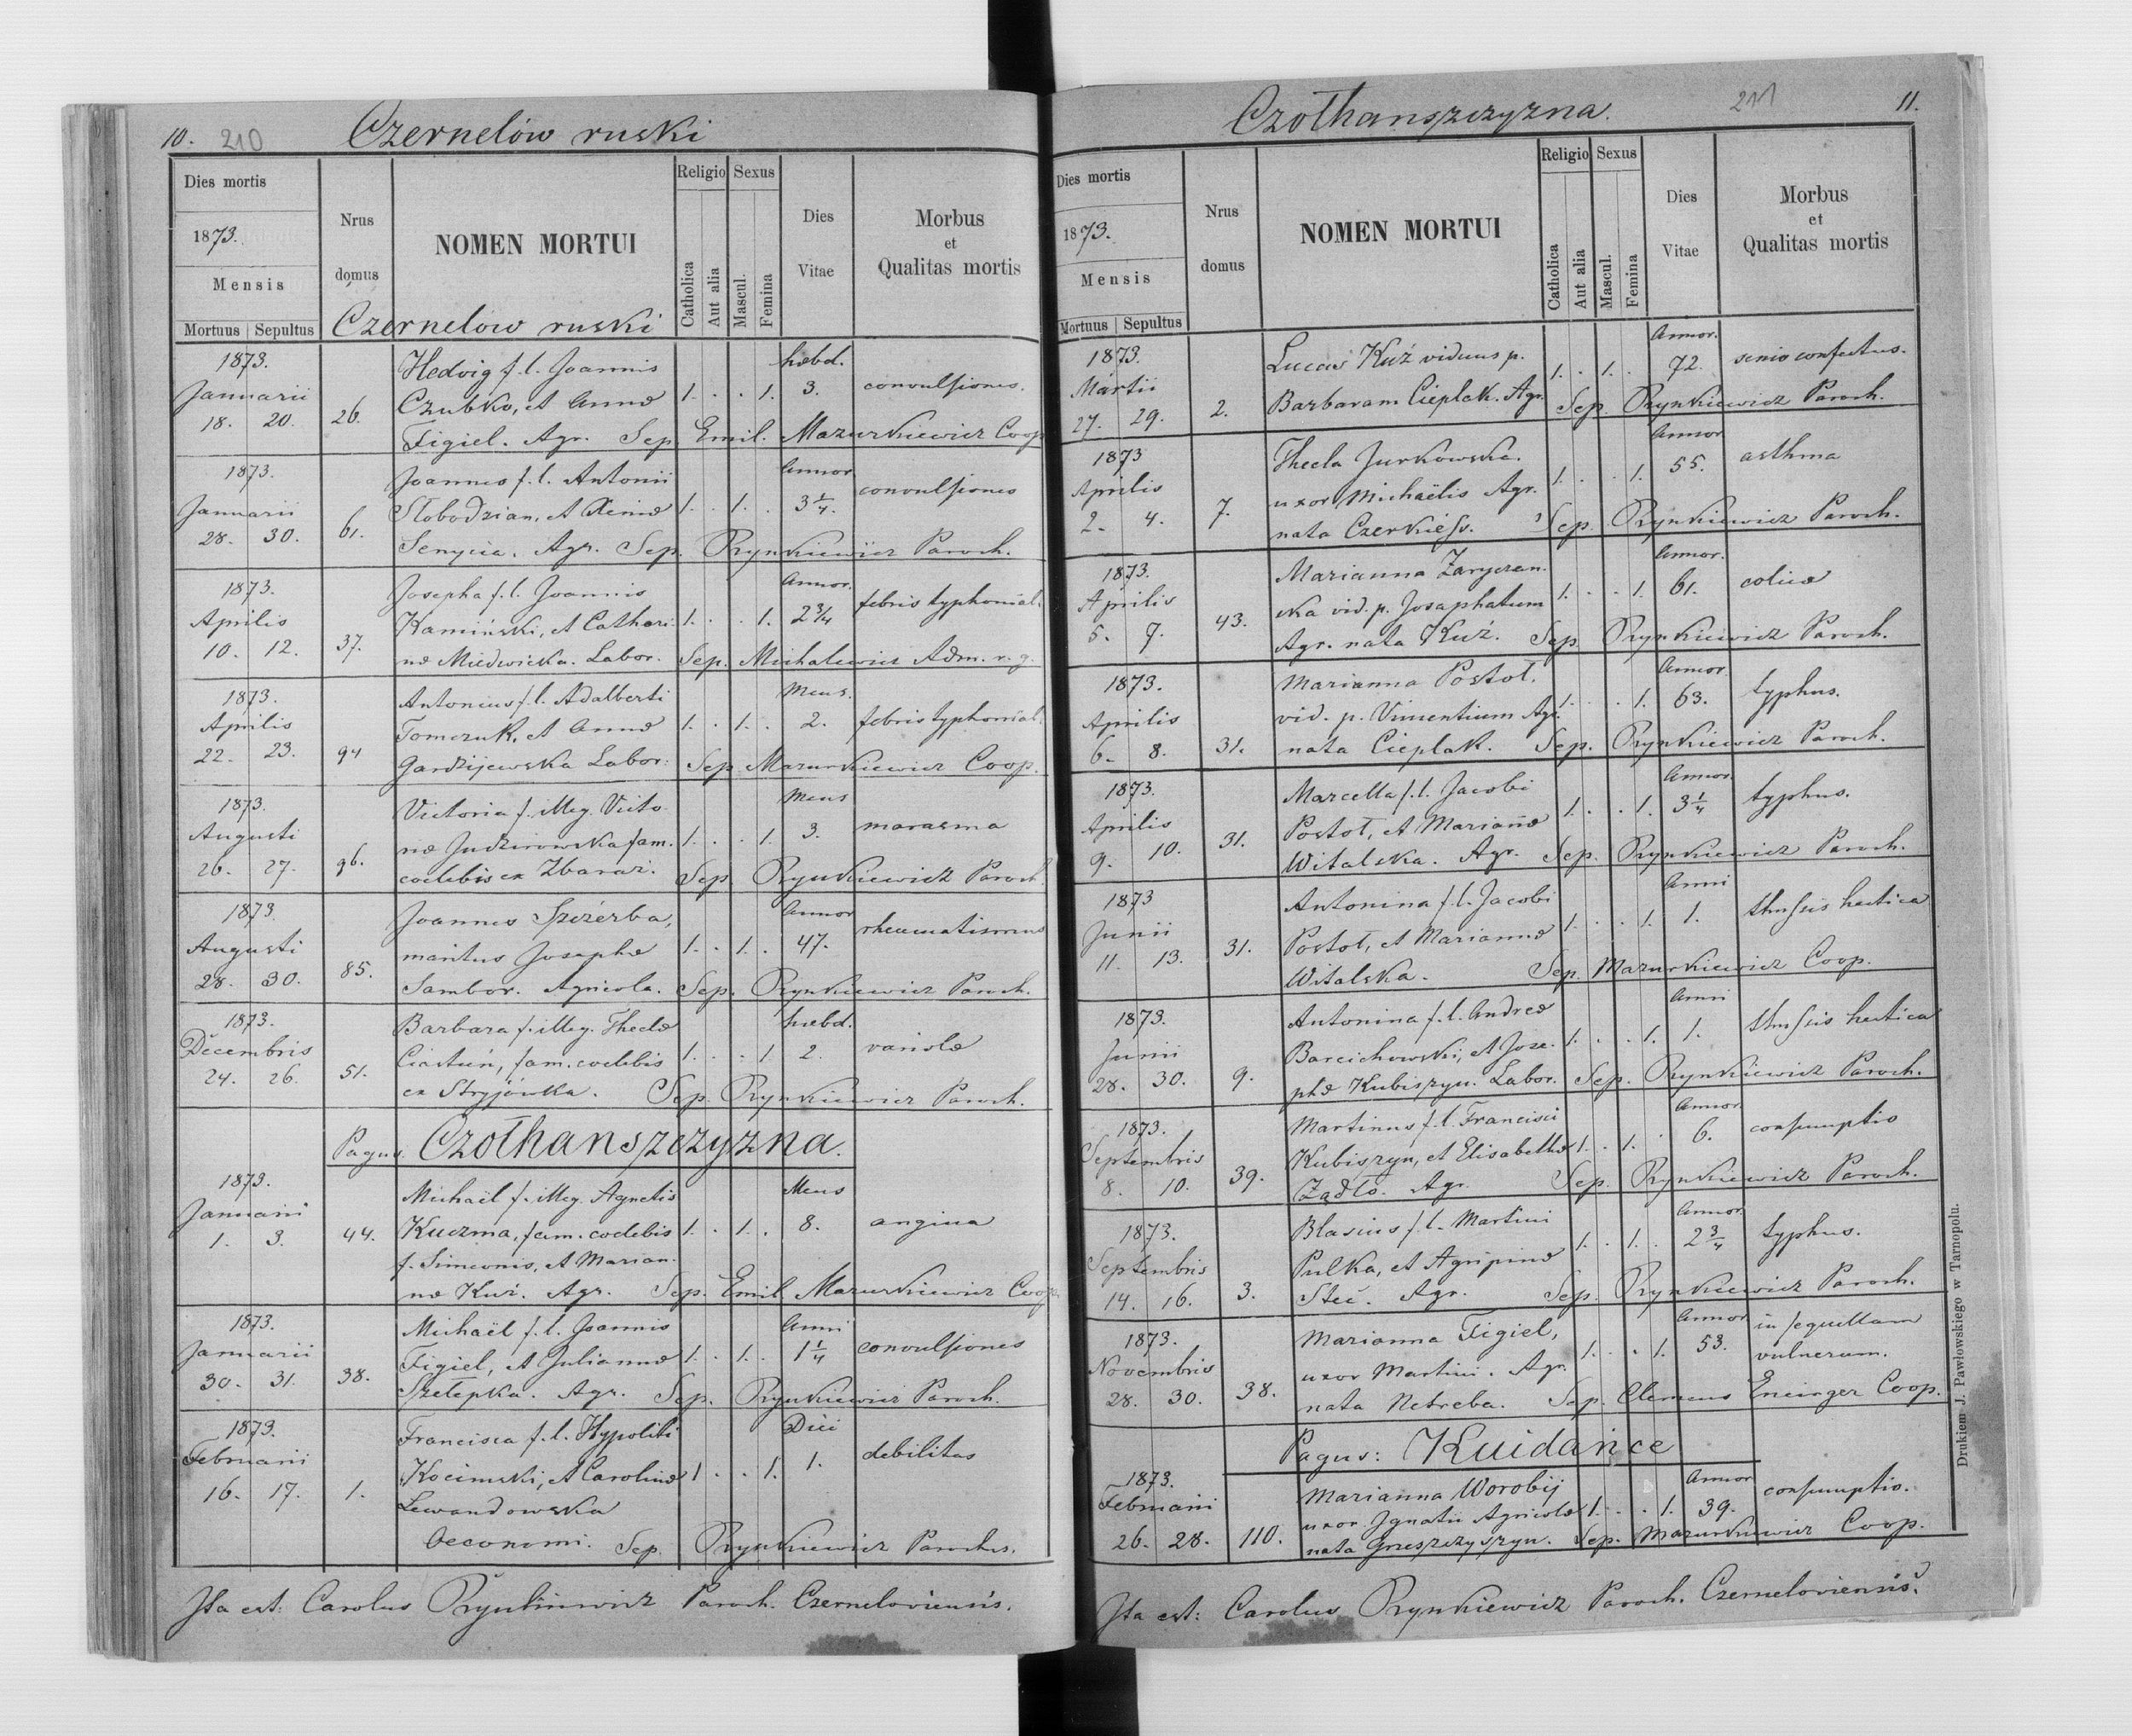 10. 210 Czernelów ruski
Dies mortis
1873.
Mensis
Mortuus Sepultus
Nrus domus
NOMEN MORTUI
Religio
Catholica
Aut alia
Sexus
Mascul.
Femina
Dies Vitae
Morbus et Qualitas mortis
Czernelow ruski
1873. Hedvig f. l. Joannis hebd.
Januarii Czubko, et Annæ 1. . . 1. 3. convulsiones.
18. 20. 26. Figiel. Agr. Sep. Emil. Mazurkiewicz Coop
1873. Joannes f. l. Antonii Annor.
Januarii Slobodzian, et Xeniæ 1. . 1. . 3 1/4. convulsiones
28. 30. 61. Senycia. Agr. Sep. Rynkiewicz Paroch.
1873. Josepha f. l. Joannis Annor.
Aprilis Kamiński, et Cathari- 1. . . 1. 2 3/4 febris typhonial.
10. 12. 37. næ Miedwicka. Labor. Sep. Michalewicz Adm. r. g.
1873. Antonius f. l. Adalberti Mens.
Aprilis Tomczuk, et Annæ 1. . 1. . 2. febris typhonial.
22. 23. 94 Gardzijewska Labor: Sep. Mazurkiewicz Coop.
1873. Victoria f. illeg. Victo- Mens
Augusti næ Judzirowska fam. 1. . . 1. 3. marasma
26. 27. 96. coelebis ex Zbaraz. Sep. Rynkiewicz Paroch.
1873. Joannes Szczerba, Annor
Augusti maritus Josephæ 1. . 1. . 47. rheumatismus
28. 30. 85. Sambor. Agricola. Sep. Rynkiewicz Paroch.
1873. Barbara f. illeg. Theclæ hebd.
Decembris Ciastuń, fam. coelebis 1. . . 1. 2. variolæ
24. 26. 51. ex Stryjówka. Sep. Rynkiewicz Paroch.
Pagus. Czołhanszczyzna.
1873. Michaël f. illeg. Agnetis Mens
Januarii Kuczma, fam. coelebis 1. . 1. . 8. angina
1. 3. 44. f. Simeonis, et Marian-
næ Kuź. Agr. Sep. Emil Mazurkiewicz Coop.
1873. Michaël f. l. Joannis Anni
Januarii Figiel, et Juliannæ 1. . 1. . 1 1/4 convulsiones
30. 31. 38. Szelepka. Agr. Sep. Rynkiewicz Paroch.
1873. Francisca f. l. Hypoliti Diei
Februarii Kocimski, et Carolinæ 1 . . 1. 1. debilitas
16. 17. 1. Lewandowska
Oeconomi. Sep. Rynkiewicz Parochus.
Ita est: Carolus Rynkiewicz Paroch. Czerneloviensis.
Czołhanszczyzna. 211 11.
Dies mortis
1873.
Mensis
Mortuus Sepultus
Nrus domus
NOMEN MORTUI
Religio
Catholica
Aut alia
Sexus
Mascul.
Femina
Dies Vitae
Morbus et Qualitas mortis
1873. Lucas Kuź viduus p. Annor.
Martii 1. . 1. . 72. senio confectus.
27. 29. 2. Barbaram Cieplak. Agr. Sep. Rynkiewicz Paroch.
1873 Thecla Jurkowska. Annor
Aprilis uxor Michaëlis Agr. 1. . . 1. 55. asthma
2. 4. 7. nata Czerkiess. Sep. Rynkiewicz Paroch.
1873. Marianna Zaryczan- Annor.
Aprilis ska vid. p. Josaphatum 1. . . 1. 61. colicæ
5. 7. 43. Agr. nata Kuź. Sep Rynkiewicz Paroch.
1873. Marianna Postoł. Annor
Aprilis vid. p. Vincentium Agr. 1. . . 1. 63. typhus.
6. 8. 31. nata Cieplak. Sep. Rynkiewicz Paroch.
1873. Marcella f. l. Jacobi Annor.
Aprilis Postoł, et Mariannæ 1. . . 1. 3 1/4 typhus.
9. 10. 31. Witalska. Agr. Sep. Rynkiewicz Paroch.
1873 Antonina f. l. Jacobi Anni
Junii Postoł, et Mariannæ 1. . . 1. 1. hectica
11. 13. 31. Witalska. Sep. Mazurkiewicz Coop.
1873. Antonina f. l. Andreæ Anni
Junii Barcichowski, et Jose- 1. . . 1. 1. hectica
28. 30. 9. phæ Kubiszyn. Labor. Sep. Rynkiewicz Paroch.
1873. Martinus f. l. Francisci Annor.
Septembris Kubiszyn, et Elisabethæ 1. . 1. . 6. consumptio
8. 10. 39. Żądło. Agr. Sep. Rynkiewicz Paroch.
1873. Blasius f. l. Martini Annor.
Septembris Pulka, et Agripinæ 1. . 1. . 2 3/4 typhus.
14. 16. 3. Steć. Agr. Sep. Rynkiewicz Paroch.
1873. Marianna Figiel, Annor in sequellam
Novembris uxor Martini. Agr. 1. . . 1. 53. vulnerum.
28. 30. 38. nata Netreba. Sep. Clemens Encinger Coop.
Pagus: Kuidańce
1873. Marianna Worobij Annor
Februarii uxor Ignatii Agricolæ 1. . . 1. 39. consumptio.
26. 28. 110. nata Grzeszczyszyn. Sep. Mazurkiewicz Coop.
Ita est: Carolus Rynkiewicz Paroch. Czerneloviensis.
Drukiem J. Pawłowskiego w Tarnopolu.